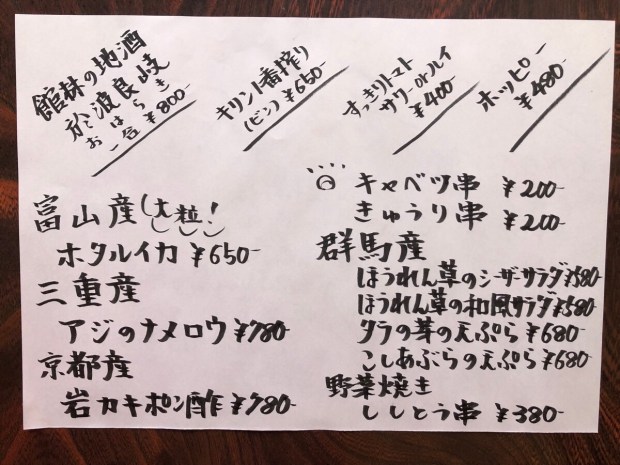 館林の地酒
於波良岐
おはらき
一合 ¥800-
キリン1番搾り
(ビン) ¥650-
すっきりトマト
サワーorハイ
¥400-
ホッピー
¥480-
富山産 大粒!
ホタルイカ ¥650-
三重産
アジのナメロウ ¥780-
京都産
岩カキポン酢 ¥780-
キャベツ串 ¥200-
きゅうり串 ¥200-
群馬産
ほうれん草のシーザーサラダ ¥580-
ほうれん草の和風サラダ ¥580-
タラの芽の天ぷら ¥680-
こしあぶらの天ぷら ¥680-
野菜焼き
ししとう串 ¥380-